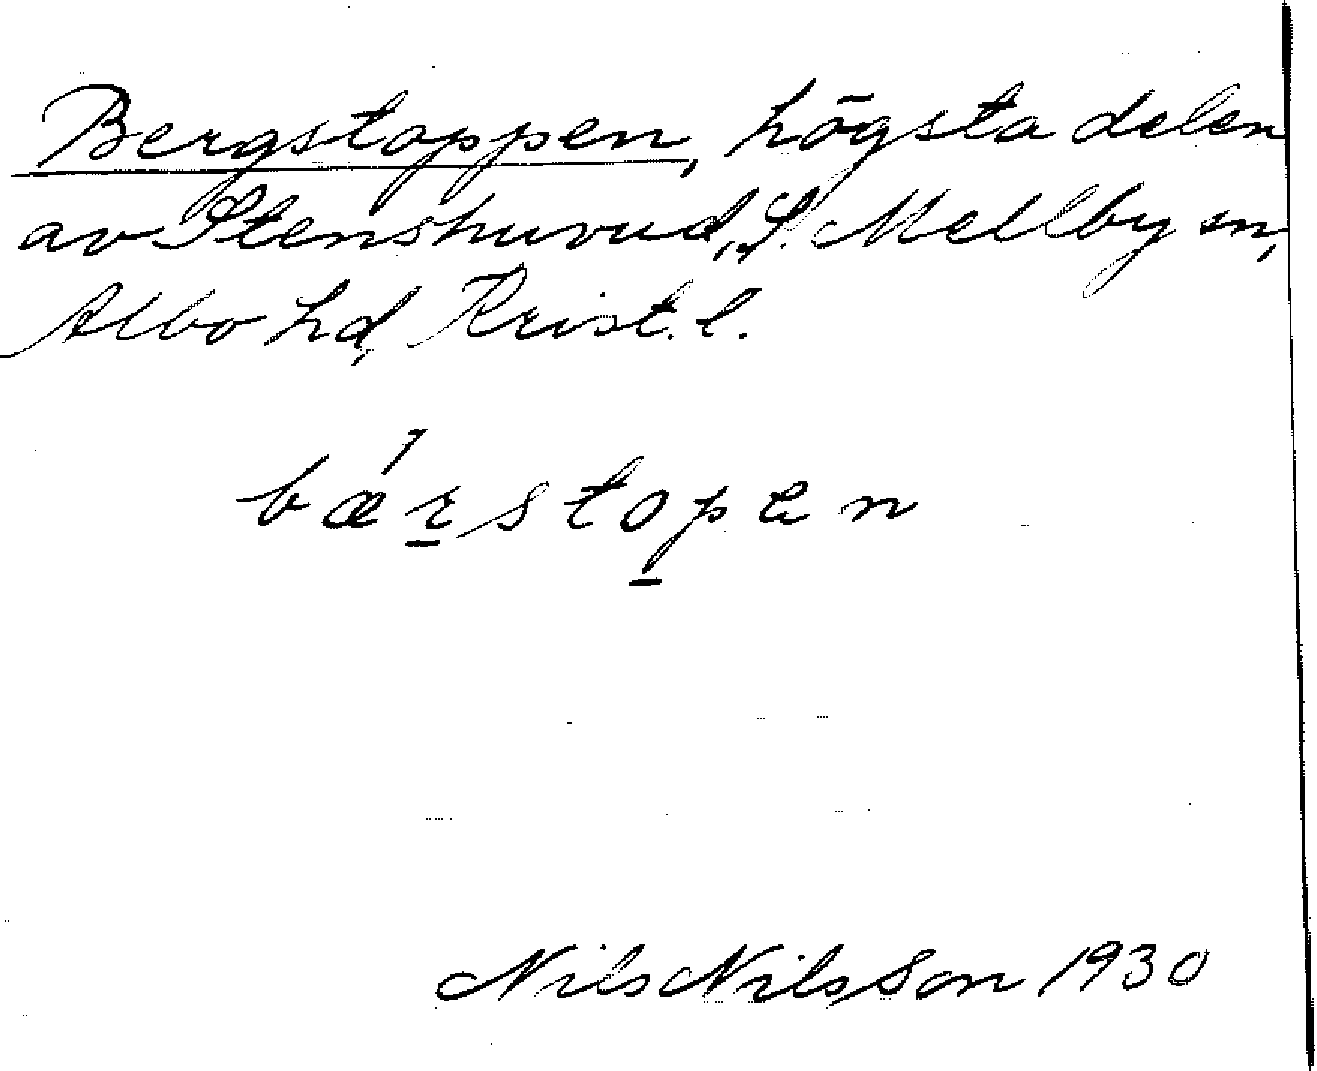 Bergstoppen, högsta delen
av Stenshuvud, S. Mellby sn,
Albo hd, Krist. l.
bǽrstopen
Nils Nilsson 1930